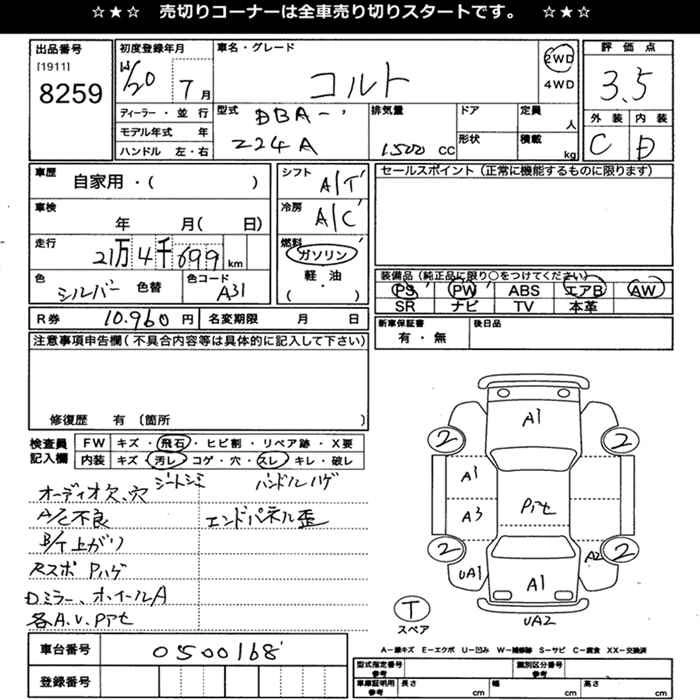 ☆★☆ 売切りコーナーは全車売り切りスタートです。 ☆★☆
出品番号
[1911]
8259
初度登録年月
H20 7 月
ディーラー・並行
モデル年式 年
ハンドル 左・右
車名・グレード
コルト
2WD
4WD
型式
DBA-
Z24A
排気量
1500 cc
ドア
形状
定員
人
積載
kg
評価点
3.5
外装 内装
C D
車歴
自家用・( )
車検
年 月( 日)
走行
21万4千699 km
色
シルバー 色替
色コード
A31
シフト
A/T
冷房
A/C
燃料
ガソリン
軽・油
( ・ )
R券 10.960 円 名変期限 月 日
セールスポイント(正常に機能するものに限ります)
装備品(純正品に限り○をつけてください)
PS PW ABS エアB AW
SR ナビ TV 本革
新車保証書
有・無
後日品
注意事項申告欄(不具合内容等は具体的に記入して下さい)
修復歴 有〔箇所 〕
検査員
記入欄
FW キズ・飛石・ヒビ割・リペア跡・X要
内装 キズ・汚レ・コゲ・穴・スレ・キレ・破レ
オーディオ欠、穴 シートシミ ハンドルハゲ
A/C不良 エンドパネル歪
B/T上がり
Rスポ Pハゲ
Dミラー、ホイールA
各A.U.Pアセ
A1
2 2
A1
A3 Pアセ
2 2
A2
UA1
A1
UA2
T
スペア
A−線キズ E−エクボ U−凹み W−補修跡 S−サビ C−腐食 XX−交換済
車台番号 0500168
登録番号
型式指定番号
参考
識別区分番号
参考
車庫証明用
参考
長さ cm 幅 cm 高さ cm